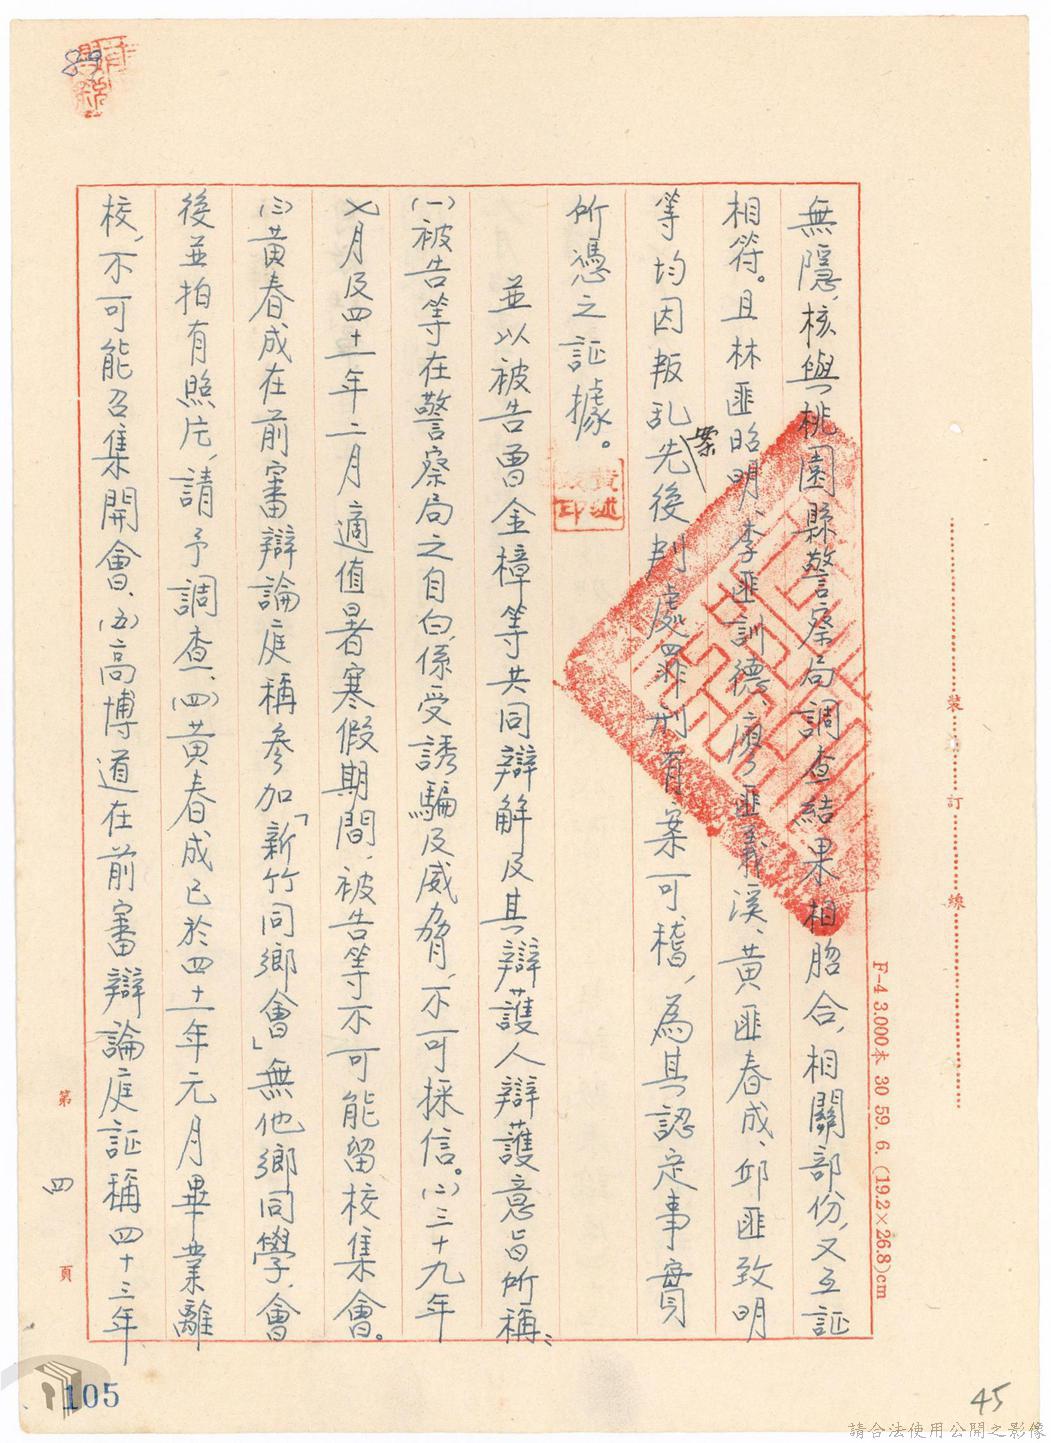 無隱，核與桃園縣警察局調查結果相脗合，相關部份，又互証
相符。且林匪昭明、李匪訓德、廖匪義溪、黃匪春成、邱匪致明
等均因叛乱案先後判處罪刑有案可稽，為其認定事實
所憑之証據。
並以被告曾金樟等共同辯解及其辯護人辯護意旨所稱：
(一)被告等在警察局之自白，係受誘騙及威脅，不可採信。(二)三十九年
七月及四十一年二月適值暑寒假期間，被告等不可能留校集會。
(三)黃春成在前審辯論庭稱參加「新竹同鄉會」無他鄉同學，會
後並拍有照片，請予調查、(四)黃春成已於四十一年元月畢業離
校，不可能召集開會、(五)高博道在前審辯論庭証稱四十三年
裝 訂 線
F-4 3.000本 30 59. 6. (19.2×26.8)cm
第 四 頁
89
105
45
請合法使用公開之影像